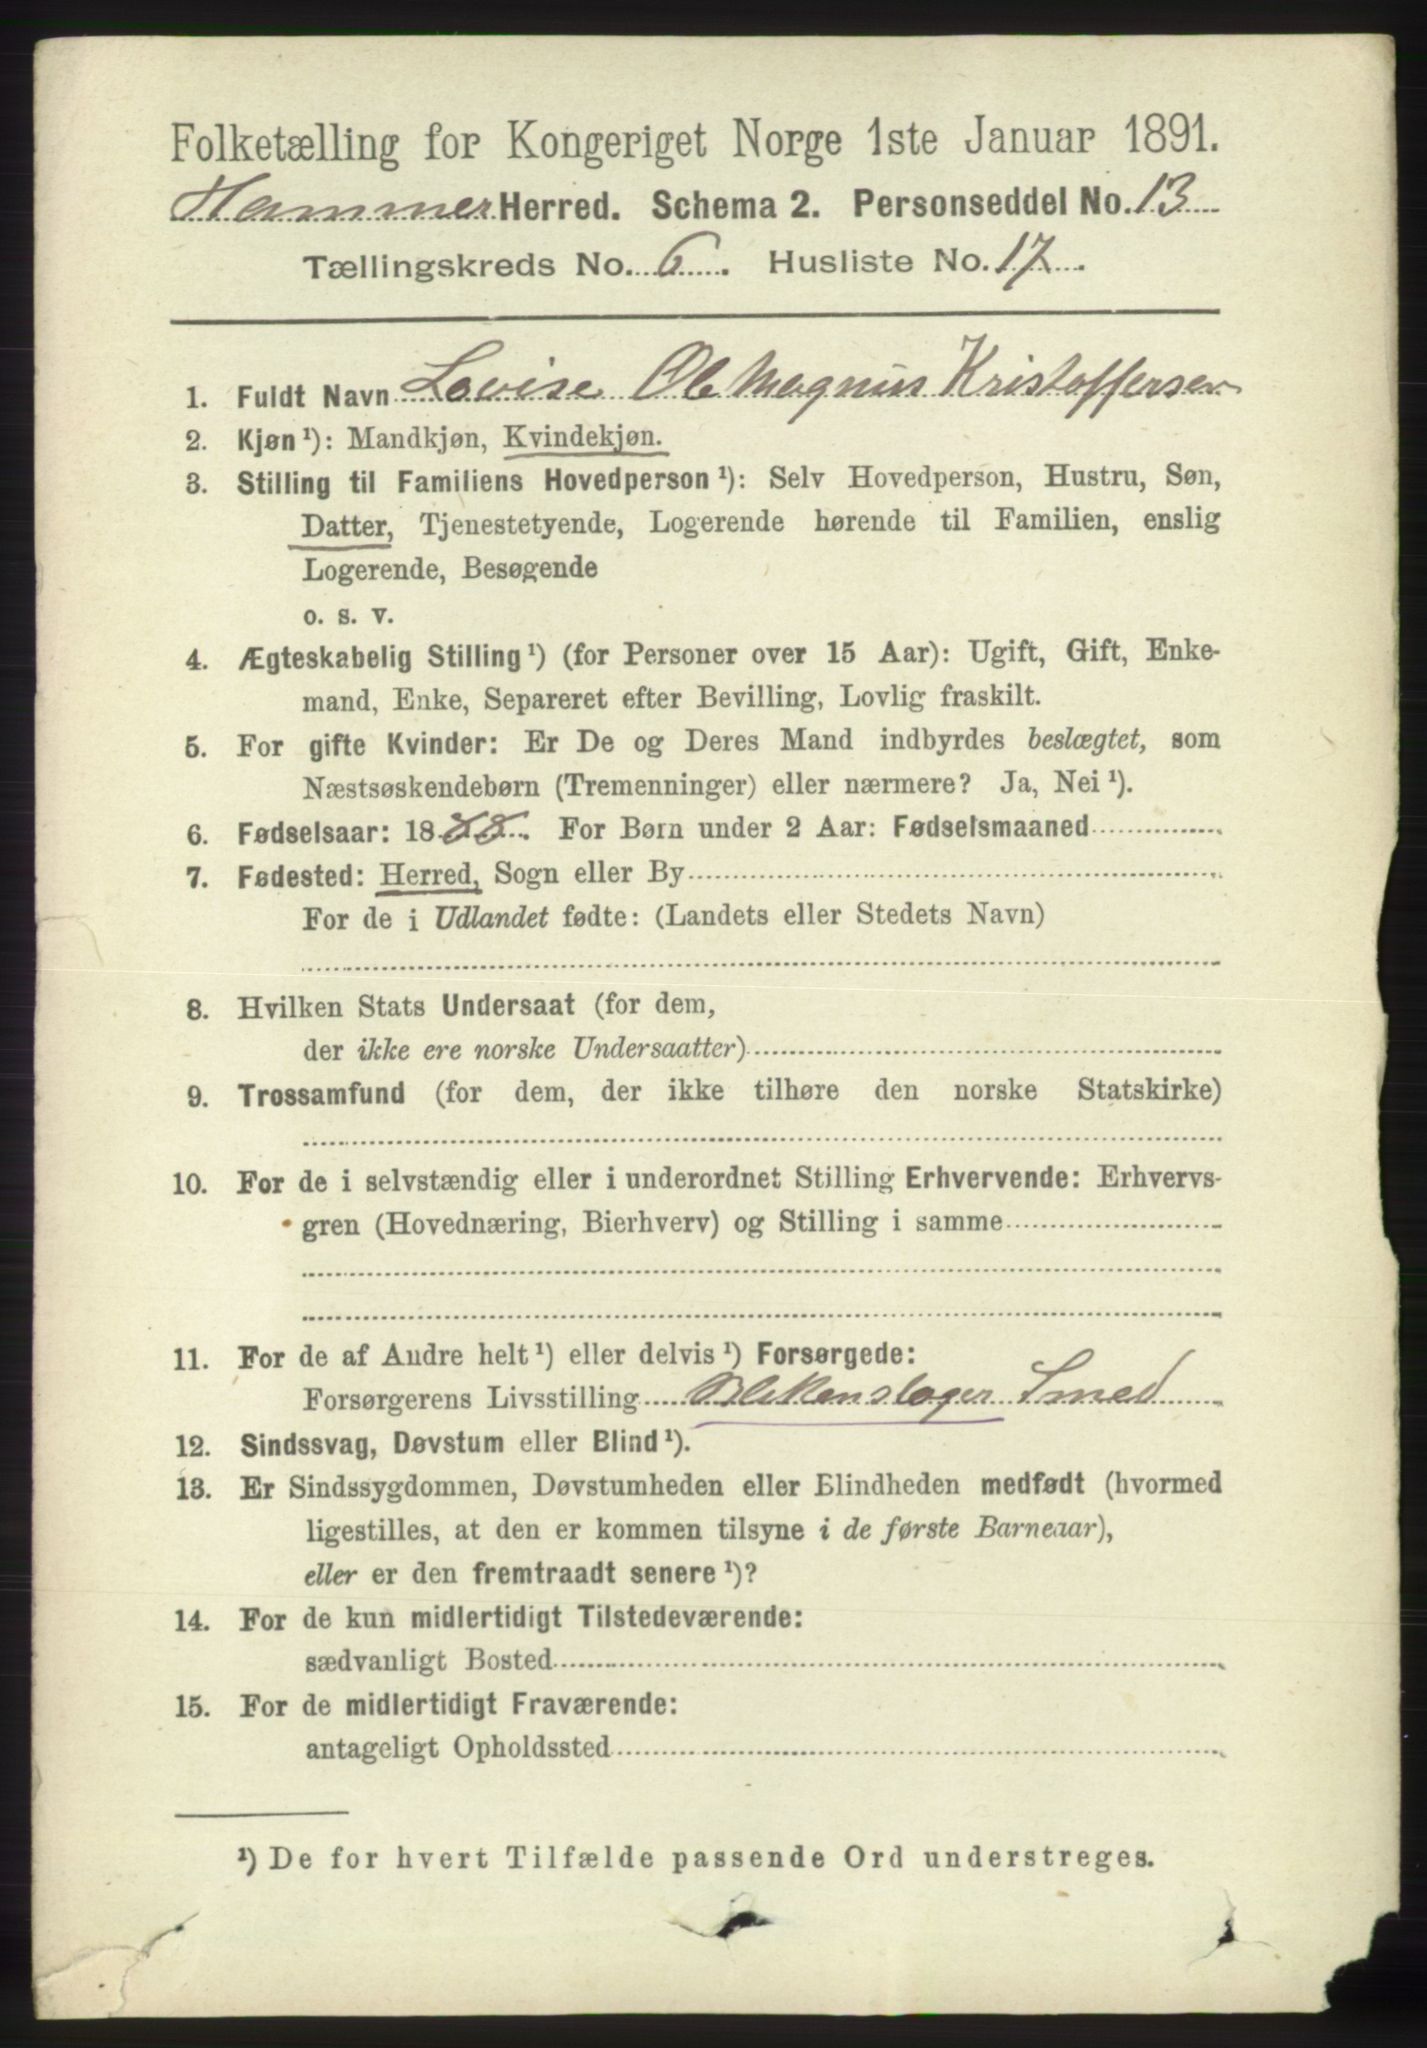 Folketælling for Kongeriget Norge 1ste Januar 1891.
Hammer Herred. Schema 2. Personseddel No. 13
Tællingskreds No. 6. Husliste No. 17.
1. Fuldt Navn Lovise Ole Magnus Kristoffersen
2. Kjøn ¹): Mandkjøn, Kvindekjøn.
3. Stilling til Familiens Hovedperson ¹): Selv Hovedperson, Hustru, Søn,
Datter, Tjenestetyende, Logerende hørende til Familien, enslig
Logerende, Besøgende
o. s. v.
4. Ægteskabelig Stilling ¹) (for Personer over 15 Aar): Ugift, Gift, Enke-
mand, Enke, Separeret efter Bevilling, Lovlig fraskilt.
5. For gifte Kvinder: Er De og Deres Mand indbyrdes beslægtet, som
Næstsøskendebørn (Tremenninger) eller nærmere? Ja, Nei ¹).
6. Fødselsaar: 1888. For Børn under 2 Aar: Fødselsmaaned
7. Fødested: Herred, Sogn eller By
For de i Udlandet fødte: (Landets eller Stedets Navn)
8. Hvilken Stats Undersaat (for dem,
der ikke ere norske Undersaatter)
9. Trossamfund (for dem, der ikke tilhøre den norske Statskirke)
10. For de i selvstændig eller i underordnet Stilling Erhvervende: Erhvervs-
gren (Hovednæring, Bierhverv) og Stilling i samme
11. For de af Andre helt ¹) eller delvis ¹) Forsørgede:
Forsørgerens Livsstilling Blikenslager Smed
12. Sindssvag, Døvstum eller Blind ¹).
13. Er Sindssygdommen, Døvstumheden eller Blindheden medfødt (hvormed
ligestilles, at den er kommen tilsyne i de første Barneaar),
eller er den fremtraadt senere ¹)?
14. For de kun midlertidigt Tilstedeværende:
sædvanligt Bosted
15. For de midlertidigt Fraværende:
antageligt Opholdssted
¹) De for hvert Tilfælde passende Ord understreges.